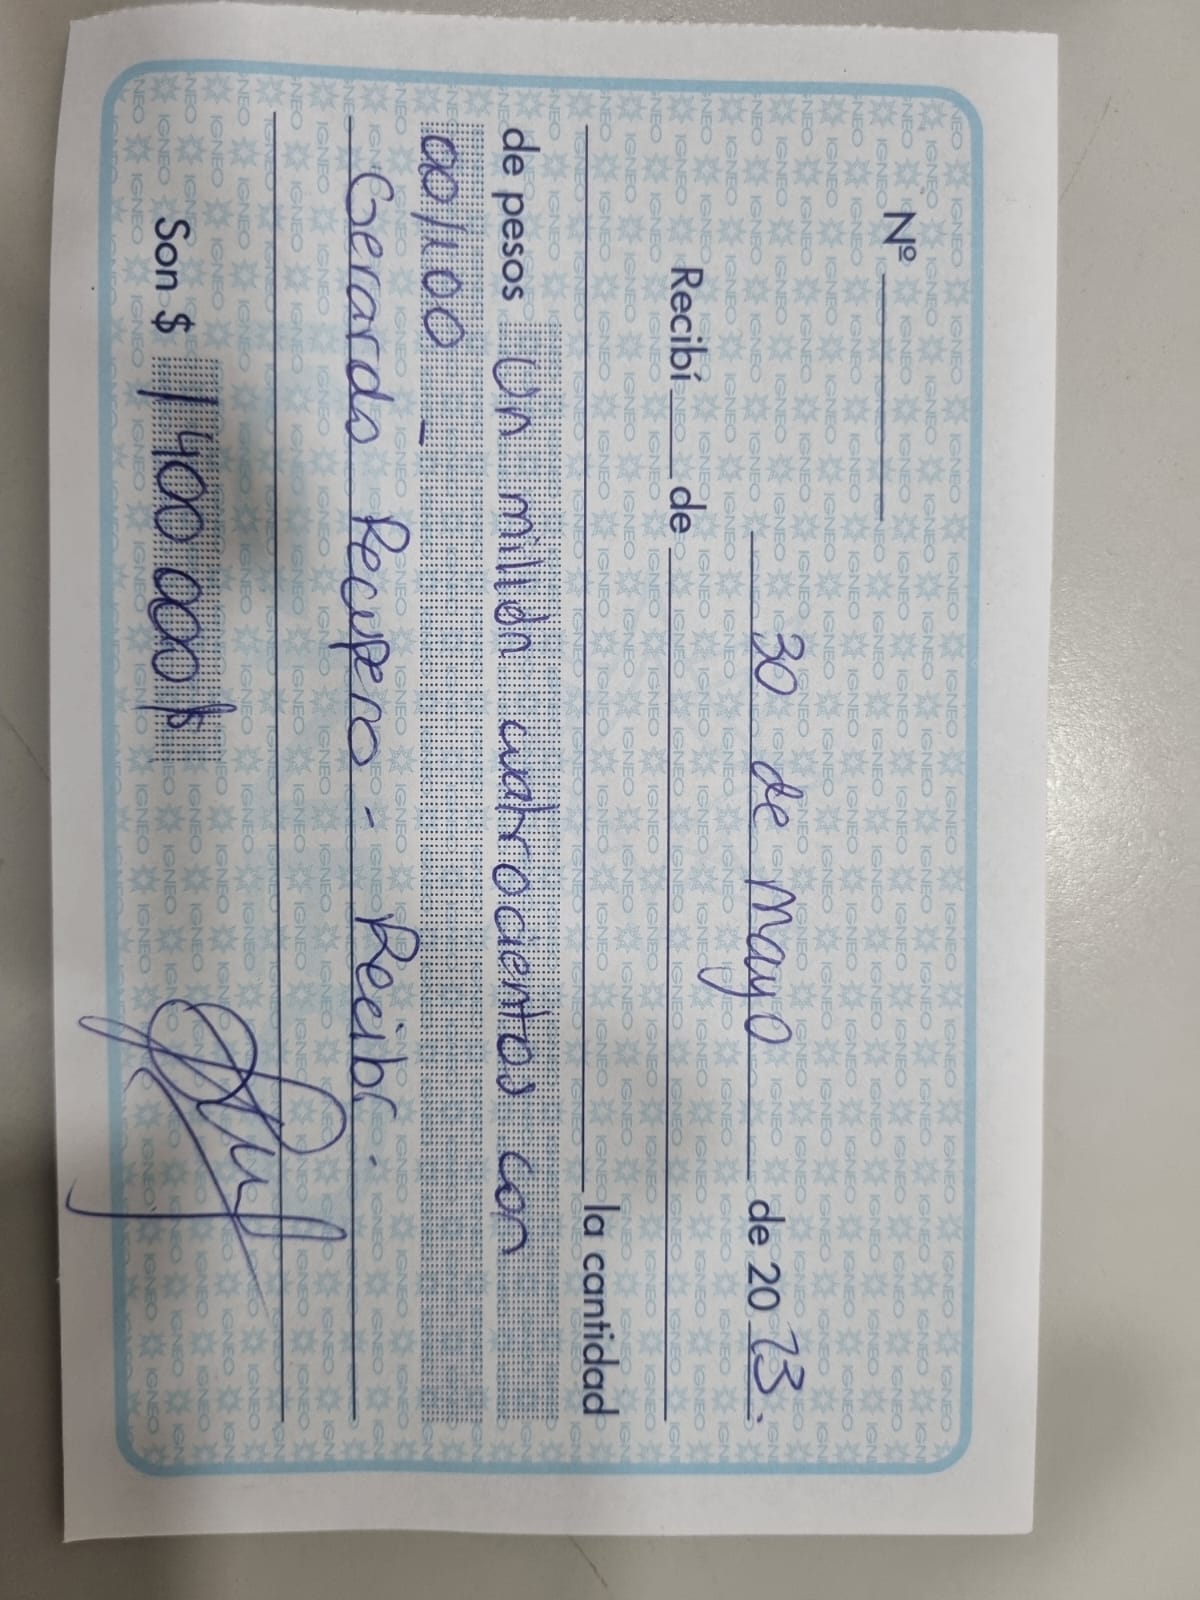 Nº
30 de Mayo de 2023.
Recibí de
la cantidad
de pesos Un millón cuatrocientos con
00/100 -
Gerardo Recupero - Recibí.
Son $ 1400 000